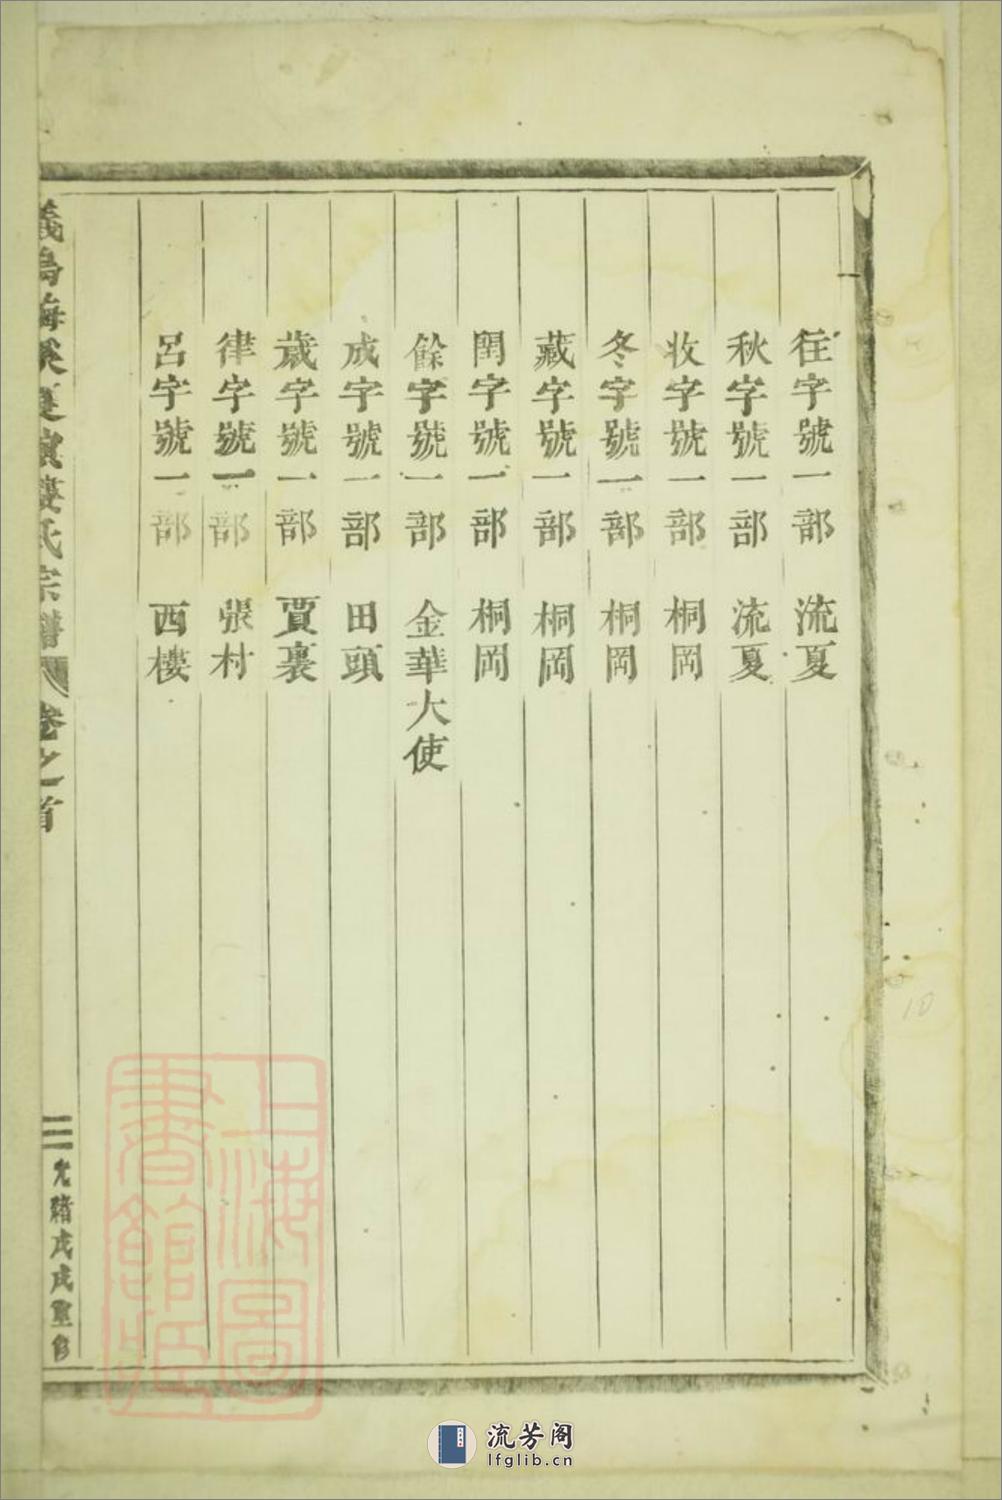 往字號一部 流夏
秋字號一部 流夏
收字號一部 桐岡
冬字號一部 桐岡
藏字號一部 桐岡
閏字號一部 桐岡
餘字號一部 金華大使
成字號一部 田頭
歲字號一部 賈裏
律字號一部 張村
呂字號一部 西樓
義烏海溪夏演樓氏宗譜 卷之首
三 光緒戊戌重修
上海圖書館藏
流芳阁
lfglib.cn
10